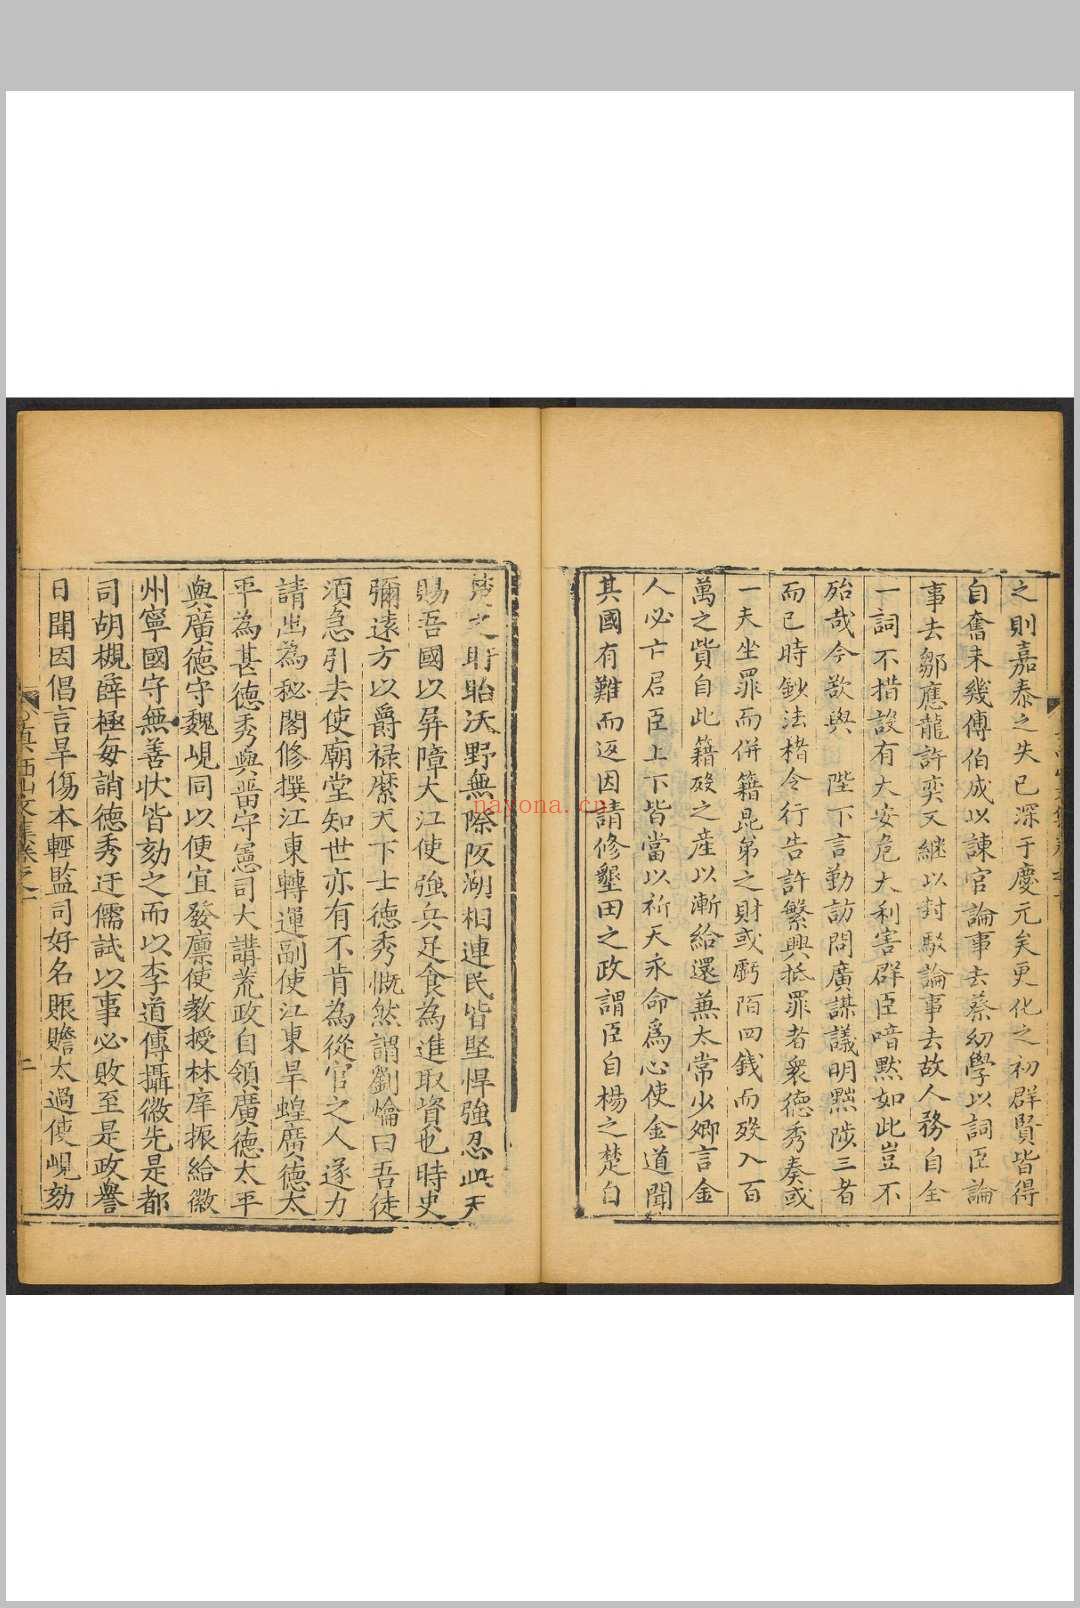 之則嘉泰之失已深于慶元矣更化之初群賢皆得
自奮未幾傅伯成以諫官論事去蔡幼學以詞臣論
事去鄒應龍許奕又繼以封駁論事去故人務自全
一詞不措設有大安危大利害群臣喑默如此豈不
殆哉今欲與 陛下言勤訪問廣謀議明黜陟三者
而已時鈔法楮令行告訐繁興抵罪者衆德秀奏或
一夫坐罪而併籍昆弟之財或虧陌四錢而歿入百
萬之貲自此籍歿之産以漸給還兼太常少卿言金
人必亡君臣上下皆當以祈天永命爲心使金道聞
其國有難而返因請修墾田之政謂臣自楊之楚自
楚之盱眙沃野無際陂湖相連民皆堅悍強忍此天
賜吾國以屏障大江使強兵足食為進取資也時史
彌遠方以爵禄縻天下士德秀慨然謂劉爚曰吾徒
須急引去使廟堂知世亦有不肯為從官之人遂力
請出為秘閣修撰江東轉運副使江東旱蝗廣德太
平為甚德秀與畱守憲司大講荒政自領廣德太平
與廣德守魏峴同以便宜發廪使教授林庠振給徽
州寧國守無善狀皆劾之而以李道傳攝徽先是都
司胡槻薛極每誚德秀迂儒試以事必敗至是政譽
日聞因倡言旱傷本輕監司好名賑贍太過使峴劾
真西山文集卷之一
二
nayona.cn